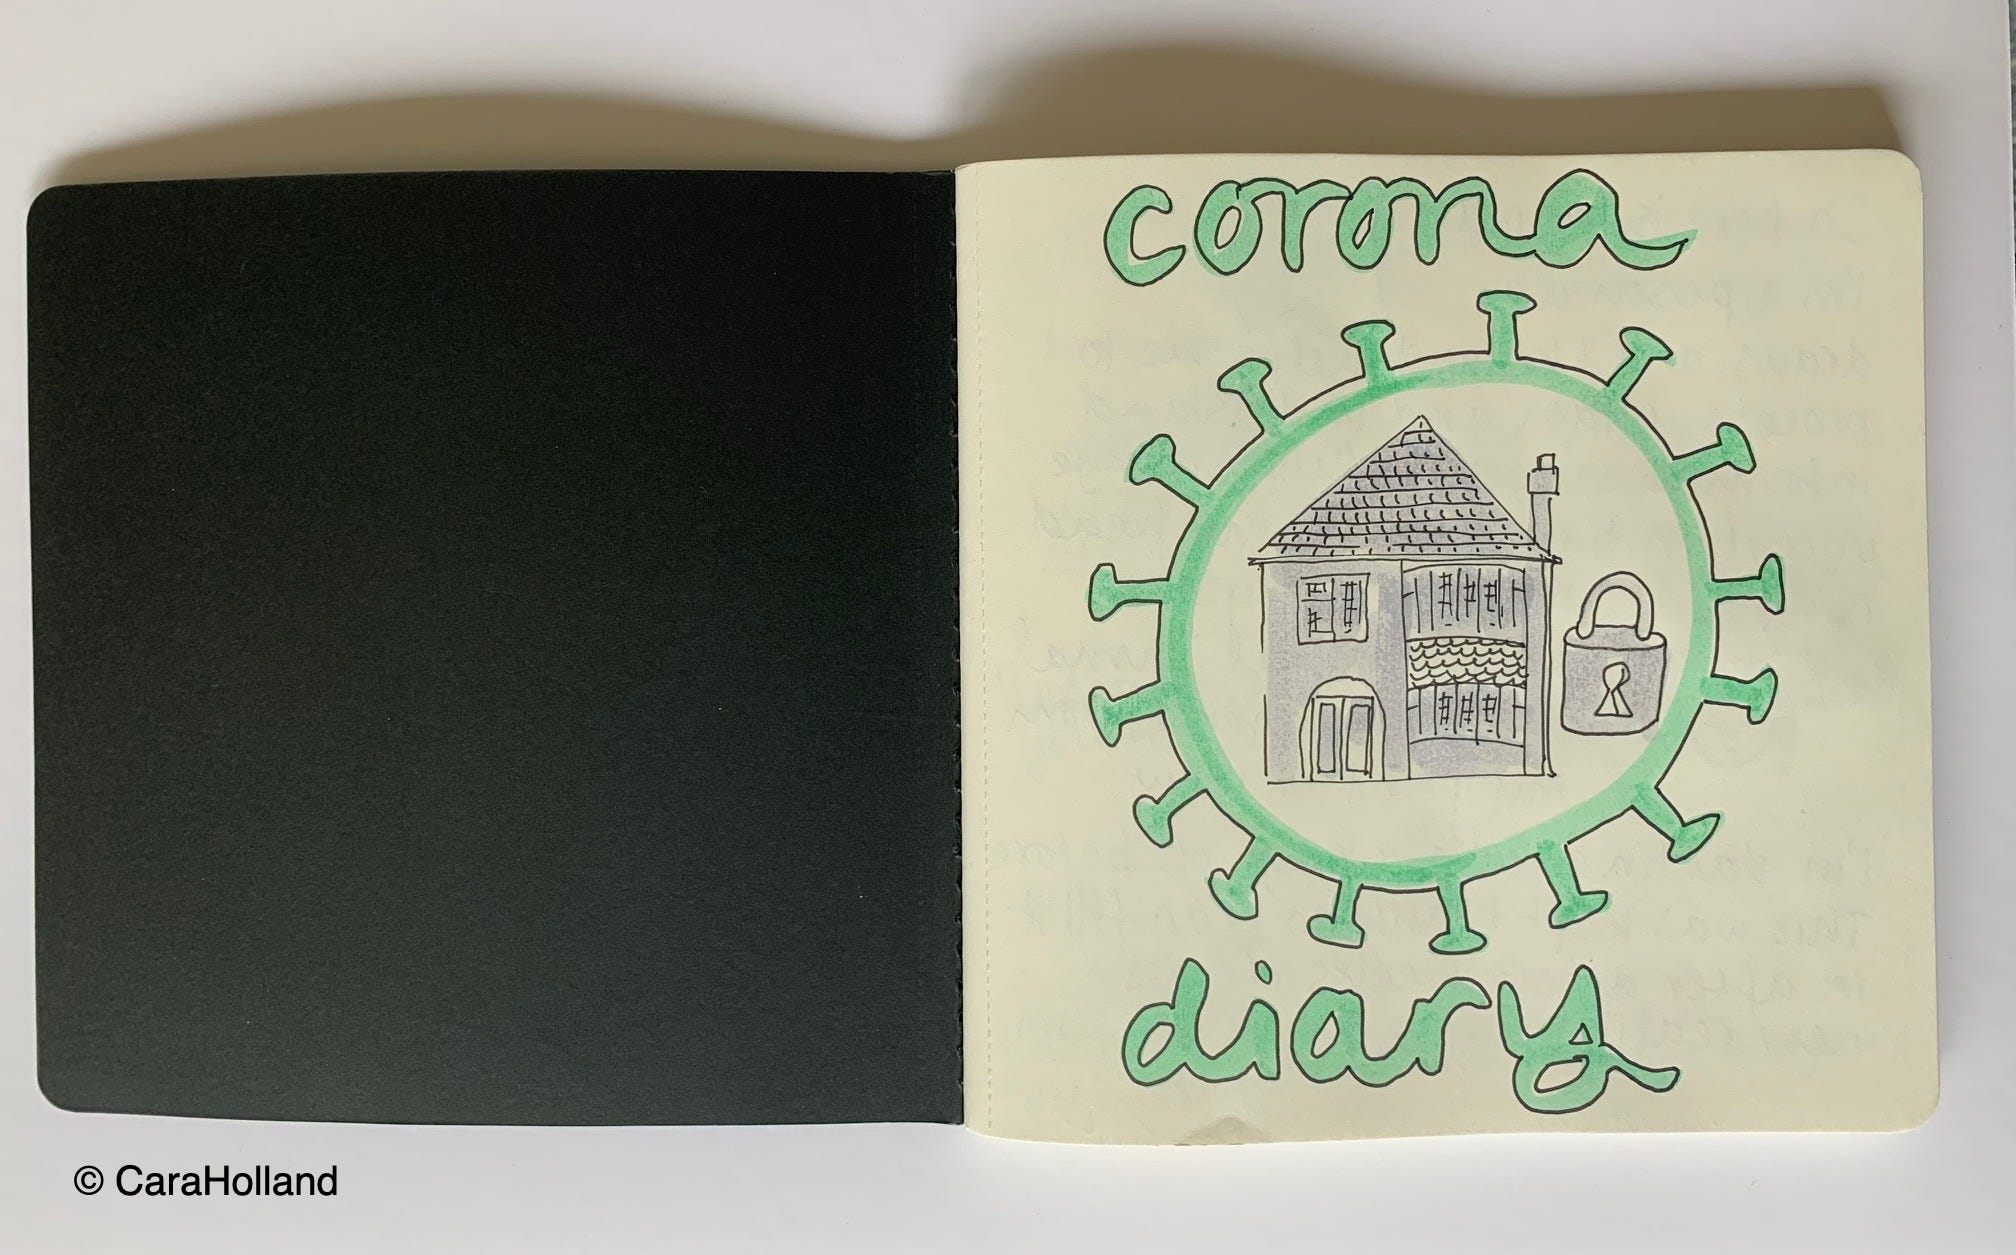 corona
diary
© CaraHolland